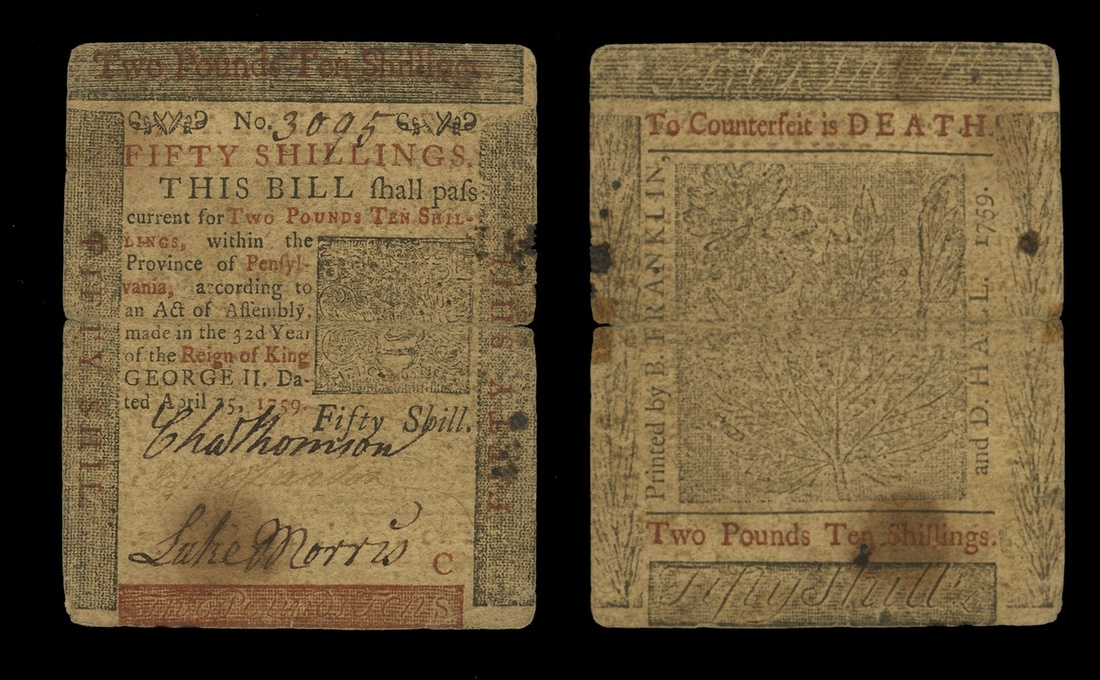 Two Pounds Ten Shillings.
No. 3095
FIFTY SHILLINGS.
THIS BILL ſhall paſs
current for Two Pounds Ten Shil-
lings, within the
Province of Penſyl-
vania, according to
an Act of Aſſembly,
made in the 32d Year
of the Reign of King
GEORGE II. Da-
ted April 25, 1759.
Fifty Shill.
Cha Thomson
Luke Morris
C
To Counterfeit is DEATH.
Printed by B. FRANKLIN,
and D. HALL. 1759.
Two Pounds Ten Shillings.
Fifty Shill